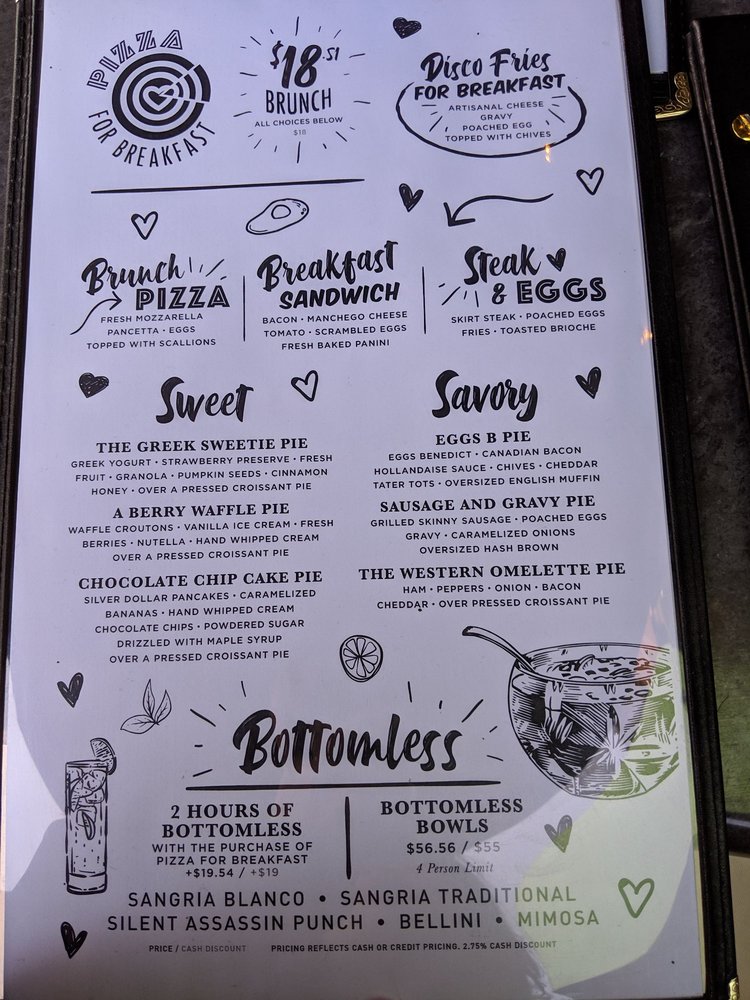 PIZZA
FOR BREAKFAST
$18.51
BRUNCH
ALL CHOICES BELOW
$18
Disco Fries
FOR BREAKFAST
ARTISANAL CHEESE
GRAVY
POACHED EGG
TOPPED WITH CHIVES
Brunch
PIZZA
FRESH MOZZARELLA
PANCETTA • EGGS
TOPPED WITH SCALLIONS
Breakfast
SANDWICH
BACON • MANCHEGO CHEESE
TOMATO • SCRAMBLED EGGS
FRESH BAKED PANINI
Steak
& EGGS
SKIRT STEAK • POACHED EGGS
FRIES • TOASTED BRIOCHE
Sweet
THE GREEK SWEETIE PIE
GREEK YOGURT • STRAWBERRY PRESERVE • FRESH
FRUIT • GRANOLA • PUMPKIN SEEDS • CINNAMON
HONEY • OVER A PRESSED CROISSANT PIE
A BERRY WAFFLE PIE
WAFFLE CROUTONS • VANILLA ICE CREAM • FRESH
BERRIES • NUTELLA • HAND WHIPPED CREAM
OVER A PRESSED CROISSANT PIE
CHOCOLATE CHIP CAKE PIE
SILVER DOLLAR PANCAKES • CARAMELIZED
BANANAS • HAND WHIPPED CREAM
CHOCOLATE CHIPS • POWDERED SUGAR
DRIZZLED WITH MAPLE SYRUP
OVER A PRESSED CROISSANT PIE
Savory
EGGS B PIE
EGGS BENEDICT • CANADIAN BACON
HOLLANDAISE SAUCE • CHIVES • CHEDDAR
TATER TOTS • OVERSIZED ENGLISH MUFFIN
SAUSAGE AND GRAVY PIE
GRILLED SKINNY SAUSAGE • POACHED EGGS
GRAVY • CARAMELIZED ONIONS
OVERSIZED HASH BROWN
THE WESTERN OMELETTE PIE
HAM • PEPPERS • ONION • BACON
CHEDDAR • OVER PRESSED CROISSANT PIE
Bottomless
2 HOURS OF
BOTTOMLESS
WITH THE PURCHASE OF
PIZZA FOR BREAKFAST
+$19.54 / +$19
BOTTOMLESS
BOWLS
$56.56 / $55
4 Person Limit
SANGRIA BLANCO • SANGRIA TRADITIONAL
SILENT ASSASSIN PUNCH • BELLINI • MIMOSA
PRICE / CASH DISCOUNT PRICING REFLECTS CASH OR CREDIT PRICING. 2.75% CASH DISCOUNT